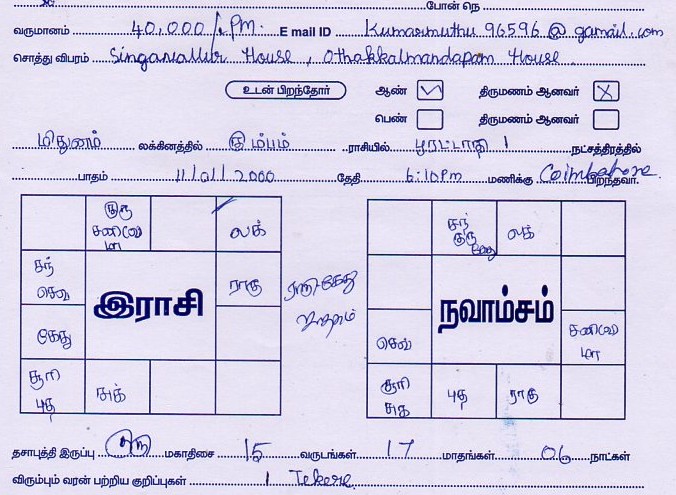 போன் நெ
வருமானம் 40,000/. PM. E mail ID Kumarmuthu96596@gamail.com
சொத்து விபரம் Singanallur House, Othakkalmandapam House
உடன் பிறந்தோர் ஆண் திருமணம் ஆனவர் X
பெண் திருமணம் ஆனவர்
மிதுனம் லக்கினத்தில் கும்பம் ராசியில் பூரட்டாதி 1 நட்சத்திரத்தில்
பாதம் 11/01/2000 தேதி 6:10PM மணிக்கு Coimbatore பிறந்தவர்.
குரு சனி லக்
சந் செவ்
இராசி
ராகு
ராகு கேது
கேது
சூரி புத சுக்
சந் குரு கேது லக்
நவாம்சம்
செவ்
சனி
சூரி சுக் புத ராகு
தசாபுத்தி இருப்பு குரு மகாதிசை 15 வருடங்கள் 17 மாதங்கள் 06 நாட்கள்
விரும்பும் வரன் பற்றிய குறிப்புகள் 1